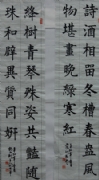 詩酒相畱冬槽春盎風
物堪畫晚綠寒紅
絳樹青琴殊姿共豔隨
珠和璧異質同妍